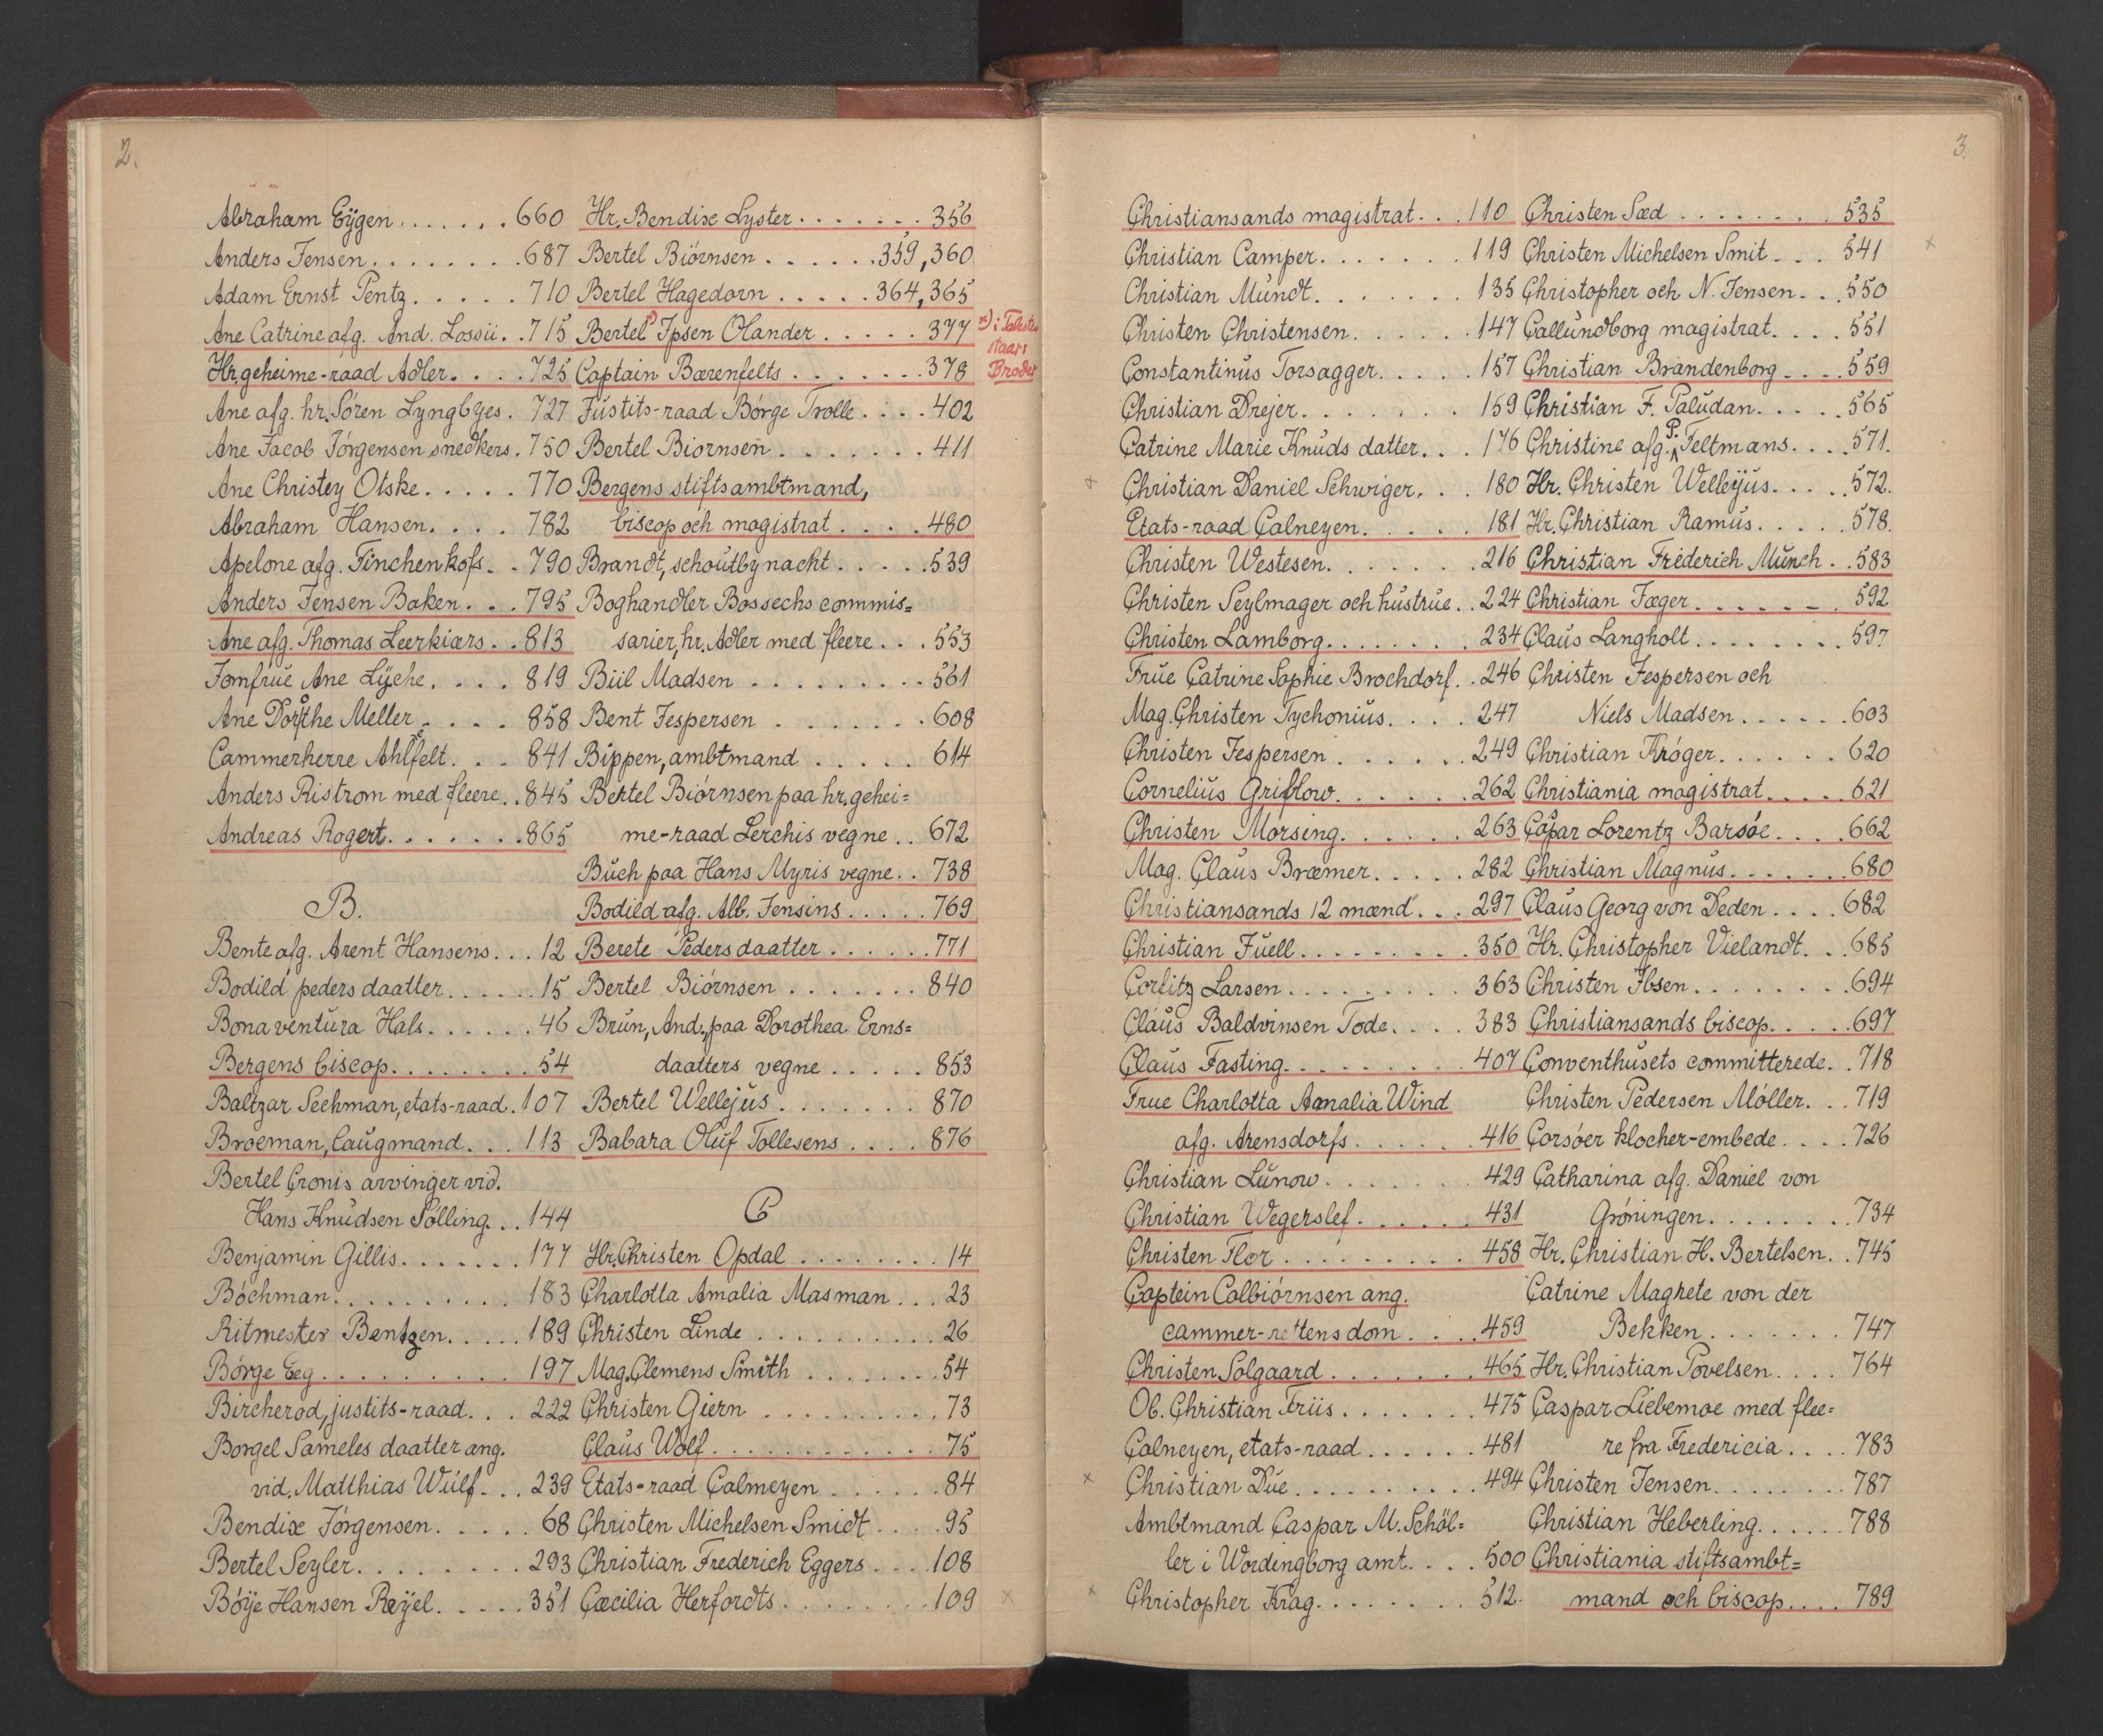 2.
Abraham Eÿgen . . . . . . . 660
Anders Jensen . . . . . . . . 687
Adam Ernst Pentz . . . . . 710
Ane Catrine afg. And. Lossii . . 715
Hr. geheime-raad Adler . . . . 725
Ane afg. hr. Sóren Lyngbyes . 727
Ane Jacob Jórgensen snedkers . 750
Ane Christey Otske . . . . . 770
Abraham Hansen . . . . 782
Apelone afg. Finchenhofs . . 790
Anders Jensen Baken . . . 795
Ane afg. Thomas Leerkiærs . . 813
Jomfrue Ane Lÿche . . . . 819
Ane Dorothe Meller . . . . 858
Cammerherre Ahlefelt . . . 841
Anders Ristrom med fleere . . 845
Andreas Rogert . . . . . . . 865
B.
Bente afg. Arent Hansens . . . 12
Bodild peders daatter . . . . . . 15
Bonaventura Hals . . . . . . 46
Bergens biscop . . . . . . . . 54
Baltzar Sechman, etats-raad . 107
Broeman, laugmand . . . 113
Bertel Cronis arvinger vid.
Hans Knudsen Sólling . . 144
Benjamin Gillis . . . . . . . 177
Bóchman . . . . . . . . . . 183
Ritmester Bentzen . . . . . 189
Bórge Eeg . . . . . . . . . 197
Bircherod, justits-raad . . . 222
Borgel Sameles daatter ang.
vid. Matthias Wulf . . . 239
Bendix Jórgensen . . . . . 68
Bertel Seyler . . . . . . . . 293
Bóÿe Hansen Reÿel . . . . . 351
Hr. Bendix Lyster . . . . . . . 356
Bertel Biórnsen . . . . . . 359, 360
Bertel Hagedorn . . . . . 364, 365
Bertel Ipsen Olander . . . . . 377
Captain Bærenfelts . . . . . . . 378
Justits-raad Bórge Trolle . . . . 402
Bertel Biornsen . . . . . . . 411
Bergens stiftsambtmand,
biscop och magistrat . . . . 480
Brandt, schoutbynacht . . . . . 539
Boghandler Bossechs commis=
sarier, hr. Adler med fleere . . . 553
Büil Madsen . . . . . . . . . 561
Bent Jespersen . . . . . . . 608
Bippen, ambtmand . . . . . 614
Bertel Biórnsen paa hr. gehei=
me-raad Lerchis vegne . . 672
Buch paa Hans Myris vegne . . 738
Bodild afg. Alb. Jensins . . . . . 769
Berete Peders daatter . . . . . . 771
Bertel Biórnsen . . . . . . . 840
Brun, And., paa Dorothea Erns=
daatters vegne . . . . . 853
Bertel Wellejus . . . . . . . 870
Babara Oluf Tollesens . . . . 876
C
Hr. Christen Opdal . . . . . . . 14
Charlotta Amalia Masman . . . 23
Christen Linde . . . . . . . . . 26
Mag. Clemens Smith . . . . . . . 54
Christen Giern . . . . . . . . . 73
Claus Wolf . . . . . . . . . . . 75
Etats-raad Calmeyen . . . . . . 84
Christen Michelsen Smidt . . . . 95
Christian Frederich Eggers . . . . 108
Cæcilia Herfordts . . . . . . . . 109 ×
Broder
3.
Christiansands magistrat . . . 110
Christian Camper . . . . . . . 119
Christian Mundt . . . . . . . 135
Christen Christensen . . . . . . 147
Constantinus Torsagger . . . . . 157
Christian Drejer . . . . . . . 159
Catrine Marie Knuds datter . . . 176
× Christian Daniel Schwiger . . . 180
Etats-raad Calneyen . . . . . 181
Christen Westesen . . . . . . . 216
Christen Seylmager och hustrue . . 224
Christen Lamborg . . . . . . . 234
Frue Catrine Sophie Brochdorf . . 246
Mag. Christen Tychonius . . . . 247
Christen Jespersen . . . . . . 249
Cornelius Griftow . . . . . . 262
Christen Morsing . . . . . . 263
Mag. Claus Bræmer . . . . . 282
Christiansands 12 mænd . . . 297
Christian Juell . . . . . . . . . 350
Corfitz Larsen . . . . . . . . . 363
Claus Baldvinsen Tode . . . . 383
Claus Fasting . . . . . . . . . 407
Frue Charlotta Amalia Wind
afg. Arensdorfs . . . . . . 416
Christian Lunow . . . . . . . 429
Christian Wegerslef . . . . . . 431
Christen Flor . . . . . . . . . 458
Captein Colbiórnsen ang.
cammer-rettens dom . . . . 459
Christen Solgaard . . . . . . . 465
Ob. Christian Friis . . . . . . . 475
Calneyen, etats-raad . . . . . . 481
× Christian Due . . . . . . . . . . 494
Ambtmand Caspar M. Schöl=
ler i Wordingborg amt . . . . 500
× Christopher Krag . . . . . . . . 512.
Christen Sæd . . . . . . . . 535
Christen Michelsen Smit . . . 541 ×
Christopher och N. Jensen . . . 550
Callundborg magistrat . . . . 551
Christian Brandenborg . . . . 559
Christian F. Paludan . . . . . 565
Christine afg. P. Feltmans . . . . 571.
Hr. Christen Wellejus . . . . . 572.
Hr. Christian Ramus . . . . . 578.
Christian Friderich Munch . . 583
Christian Jæger . . . . . . . 592
Claus Langholt . . . . . . . . 597
Christen Jespersen och
Niels Madsen . . . . . . 603
Christian Króger . . . . . . 620
Christiania magistrat . . . . . 621
Caspar Lorentz Barsóe . . . . 662
Christian Magnus . . . . . . . 680
Claus Georg von Deden . . . . 682
Hr. Christopher Vielandt . . . 685
Christen Ibsen . . . . . . . . 694
Christiansands biscop . . . . . 697
Conventhusets committerede . 718
Christen Pedersen Móller . . . 719
Corsóer klocher-embede . . . . 726
Catharina afg. Daniel von
Gróningen . . . . . . . . 734
Hr. Christian H. Bertelsen . . 745
Catrine Magrete von der
Bekken . . . . . . . 747
Hr. Christian Povelsen . . . . 764
Caspar Liebemoe med flee=
re fra Fredericia . . . . 783
Christen Jensen . . . . . . . . 787
Christian Heberling . . . . . . 788
Christiania stiftsambt=
mand och biscop . . . . 789